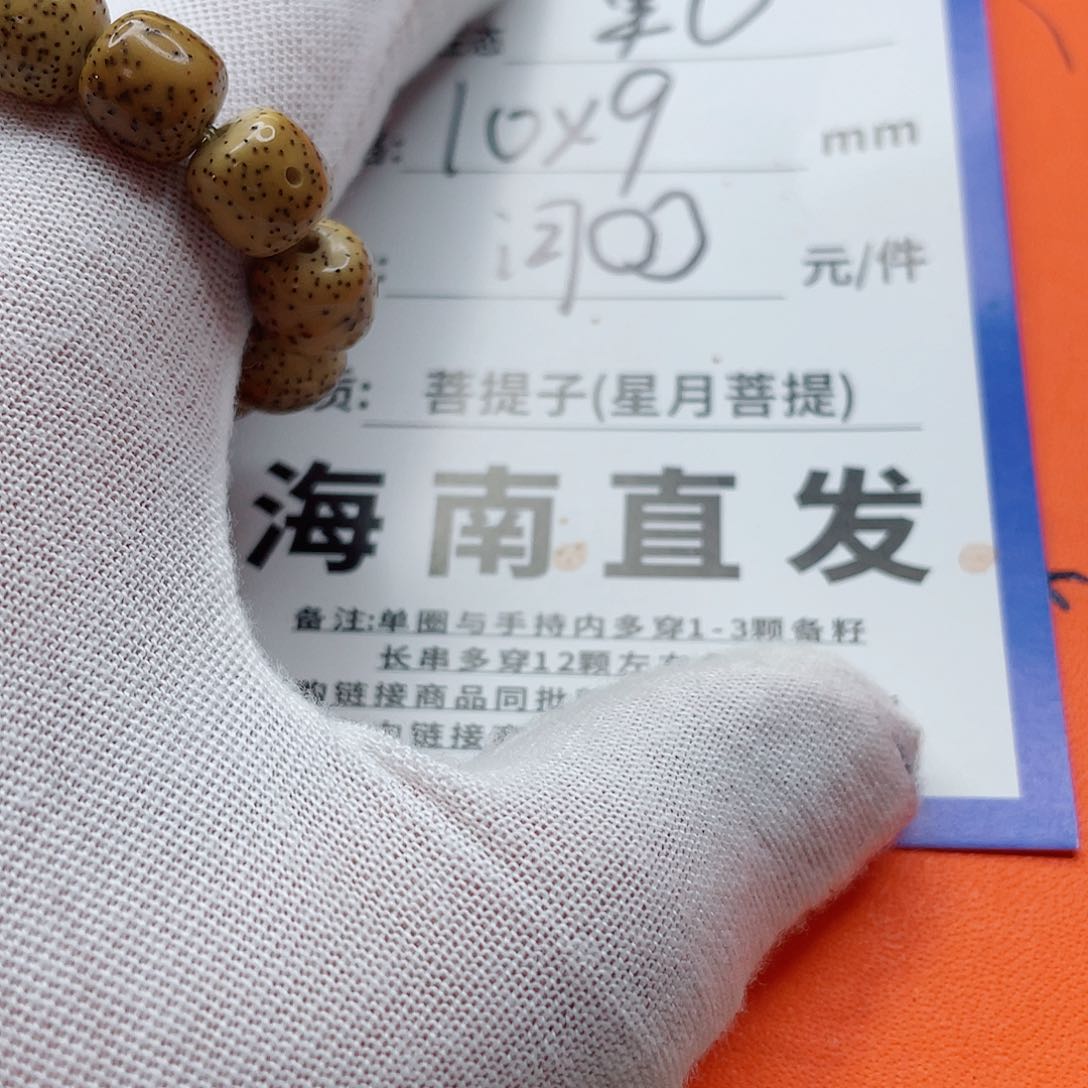 10×9 mm
元/件
质: 菩提子(星月菩提)
海南直发
备注:单圈与手持内多穿1-3颗备籽
长串多穿12颗左
链接商品同批
链接